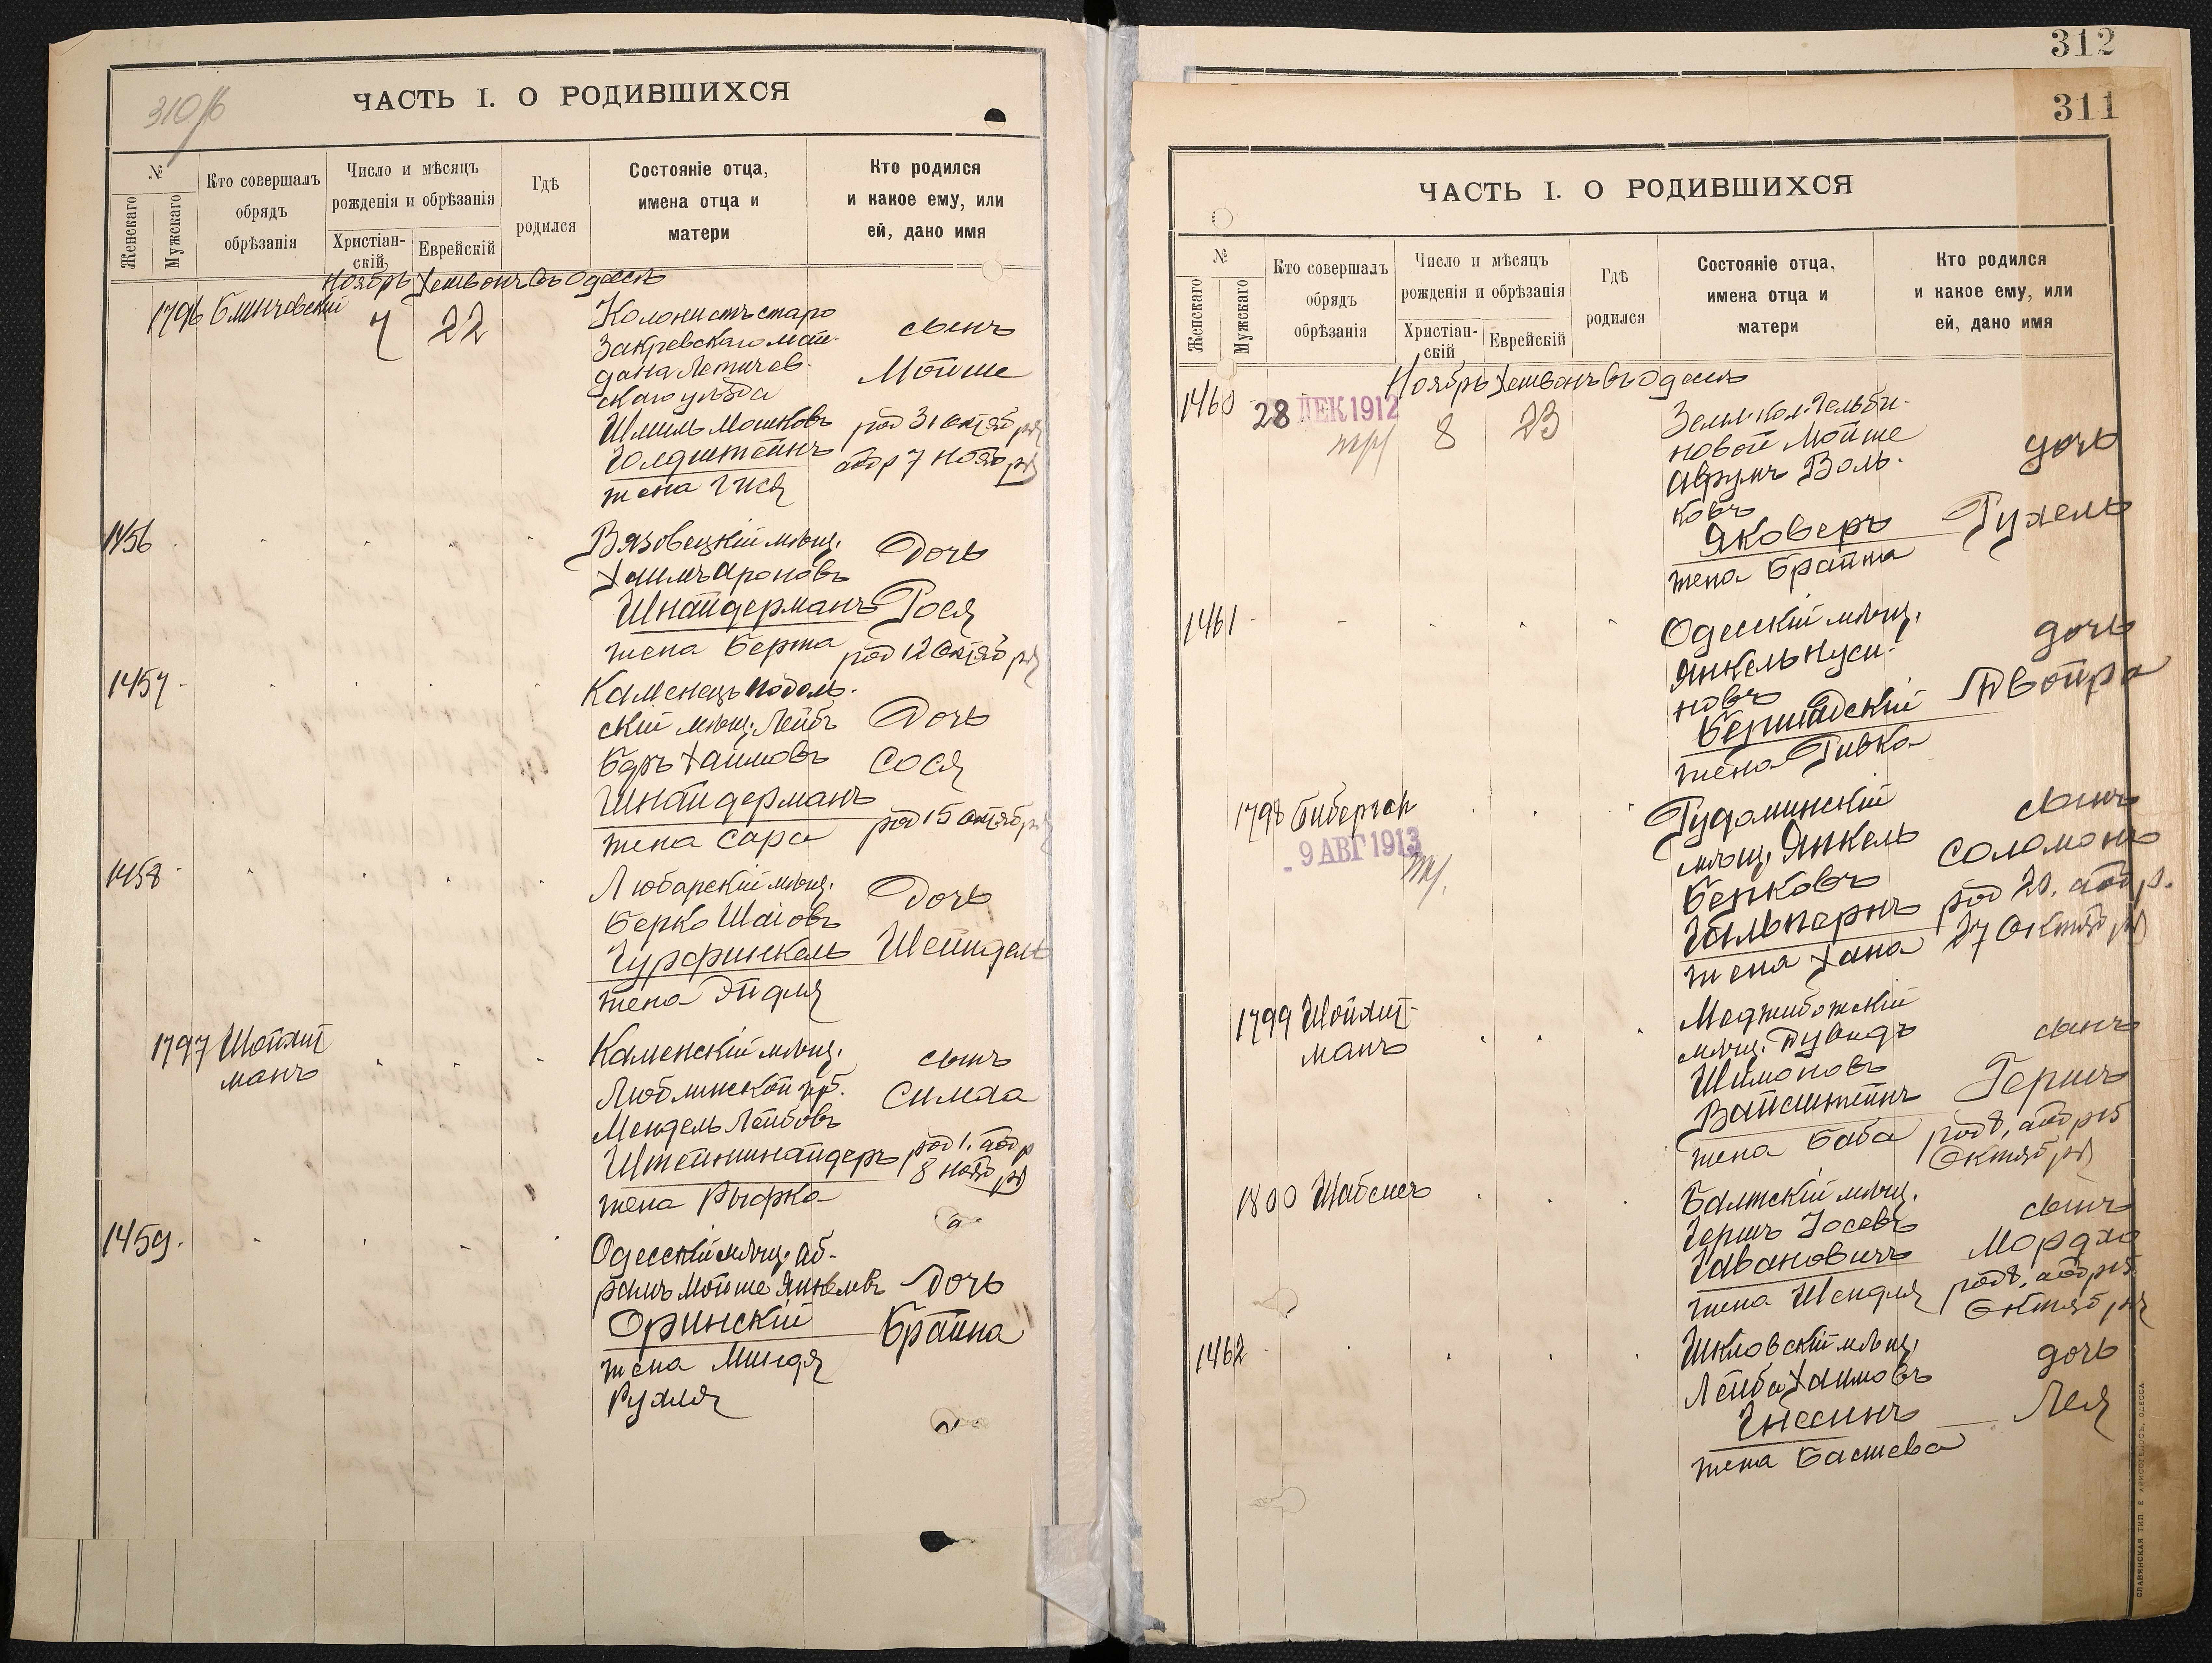 310 об
ЧАСТЬ I. О РОДИВШИХСЯ
№
Женскаго
Мужскаго
Кто совершалъ обрядъ обрѣзанія
Число и мѣсяцъ рожденія и обрѣзанія
Христіан-скій
Еврейскій
Гдѣ родился
Состояніе отца, имена отца и матери
Кто родился и какое ему, или ей, дано имя
Ноябрь Хешвонъ Въ Одессѣ
1796
7 22
Колонистъ старо
Закревскаго май-
дана Летичев-
скаго уѣзда
Шмиль Мошковъ
Голдштейнъ
жена Гися
сынъ
Мойше
род 31 октяб
обр 7 ноября
1456
Вязовецкій мѣщ.
Хаимъ Ароновъ
Шнайдерманъ
жена Берта
Дочь
Рося
род 12 октября
1457
Каменецъ Подоль-
скій мѣщ. Лейбъ
Беръ Хаимовъ
Шнайдерманъ
жена Сара
Дочь
Сося
род 15 октября
1458
Любарскій мѣщ.
Берко Шаіовъ
Гурфинкель
жена Эйдля
Дочь
Шейндель
1797 Шойхет
манъ
Каменскій мѣщ.
Люблинской губ.
Мендель Лейбовъ
Штейншнайдеръ
жена Рыфка
сынъ
Симха
род 1. обр
8 ноября
1459.
Одесскій мѣщ. Аб-
рамъ Мойше Янкелевъ
Оринскій
жена Миндя
Рухля
Дочь
Брайна
312
311
ЧАСТЬ I. О РОДИВШИХСЯ
№
Женскаго
Мужскаго
Кто совершалъ обрядъ обрѣзанія
Число и мѣсяцъ рожденія и обрѣзанія
Христіан-скій
Еврейскій
Гдѣ родился
Состояніе отца, имена отца и матери
Кто родился и какое ему, или ей, дано имя
Ноябрь Хешвонъ Въ Одессѣ
1460
28 ДЕК 1912
8 23
новой Мойше
Аврумъ Воль-
ковъ
Яковеръ
жена Брайна
дочь
Рухель
1461
Одесскій мѣщ.
Янкель Нуси-
новъ
Бершадскій
жена Ривка
дочь
Двойра
1798
9 АВГ 1913
мѣщ. Янкель
Берковъ
Гальпернъ
жена Хана
сынъ
Соломонъ
род 20. обр.
27 октября
1799 Шойхет-
манъ
Меджибожскій
мѣщ. Дувидъ
Шимоновъ
Вайсштейнъ
жена Баба
сынъ
Гершъ
род 8, обр 15
октября
1800 Шабсисъ
Балтскій мѣщ.
Гершъ Іосевъ
жена Шендля
сынъ
Мордхо
род 8. обр 15
октября
1462
Шкловскій мѣщ.
Лейба Хаимовъ
Гнесинъ
жена Басшева
дочь
Лея